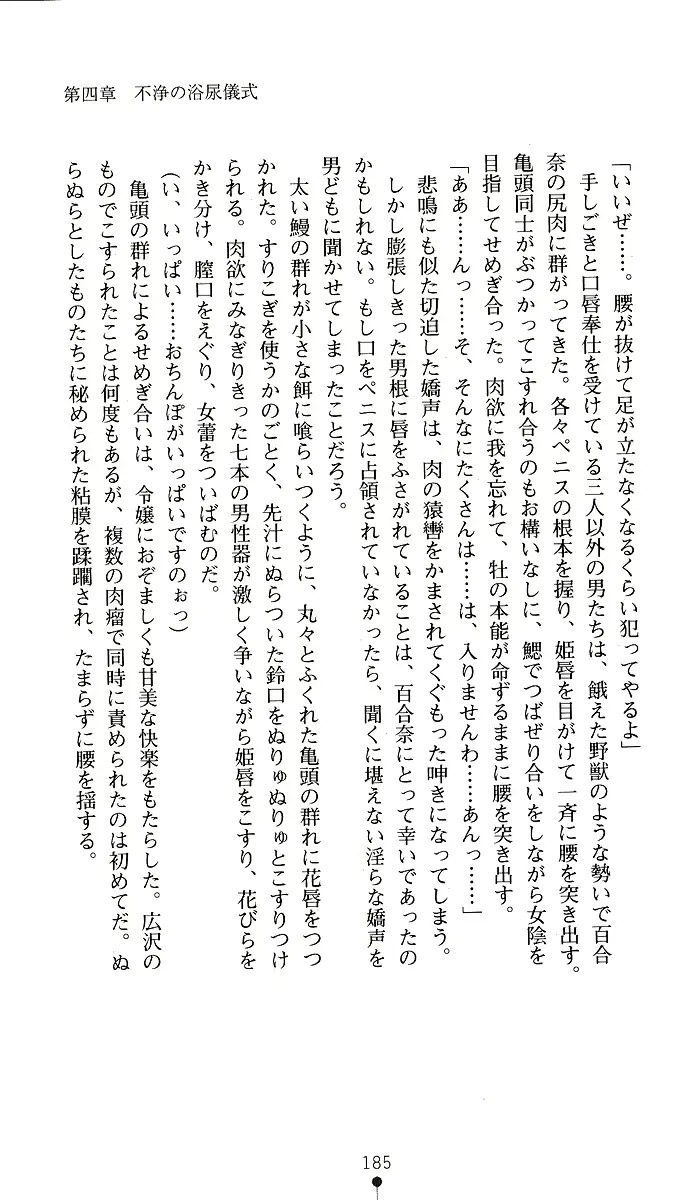 第四章　不浄の浴尿儀式
「いいぜ……。腰が抜けて足が立たなくなるくらい犯ってやるよ」
手しごきと口唇奉仕を受けている三人以外の男たちは、餓えた野獣のような勢いで百合
奈の尻肉に群がってきた。各々ペニスの根本を握り、姫唇を目がけて一斉に腰を突き出す。
亀頭同士がぶつかってこすれ合うのもお構いなしに、鰓でつばぜり合いをしながら女陰を
目指してせめぎ合った。肉欲に我を忘れて、牡の本能が命ずるままに腰を突き出す。
「ああ……んっ……そ、そんなにたくさんは……は、入りませんわ……あんっ……」
悲鳴にも似た切迫した嬌声は、肉の猿轡をかまされてくぐもった呻きになってしまう。
しかし膨張しきった男根に唇をふさがれていることは、百合奈にとって幸いであったの
かもしれない。もし口をペニスに占領されていなかったら、聞くに堪えない淫らな嬌声を
男どもに聞かせてしまったことだろう。
太い鰻の群れが小さな餌に喰らいつくように、丸々とふくれた亀頭の群れに花唇をつつ
かれた。すりこぎを使うかのごとく、先汁にぬらついた鈴口をぬりゅぬりゅとこすりつけ
られる。肉欲にみなぎりきった七本の男性器が激しく争いながら姫唇をこすり、花びらを
かき分け、膣口をえぐり、女蕾をついばむのだ。
（い、いっぱい……おちんぽがいっぱいですのぉっ）
亀頭の群れによるせめぎ合いは、令嬢におぞましくも甘美な快楽をもたらした。広沢の
ものでこすられたことは何度もあるが、複数の肉瘤で同時に責められたのは初めてだ。ぬ
らぬらとしたものたちに秘められた粘膜を蹂躙され、たまらずに腰を揺する。
185